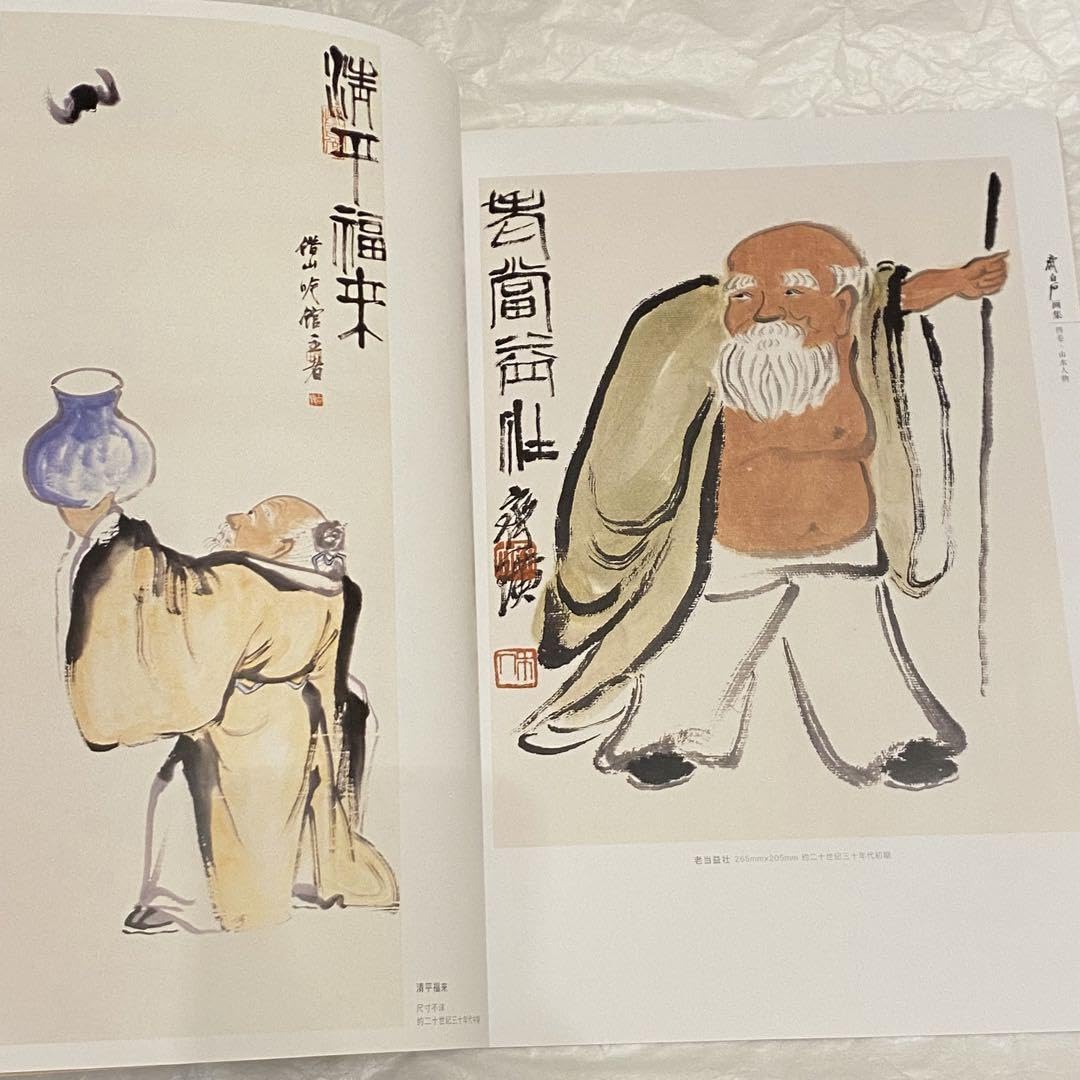 清平福来
借山吟馆主者
清平福来
尺寸不详
约二十世纪三十年代中期
老當益壯
齐璜
木人
老当益壮 265mm×205mm 约二十世纪三十年代初期
齐白石画集
山水人物